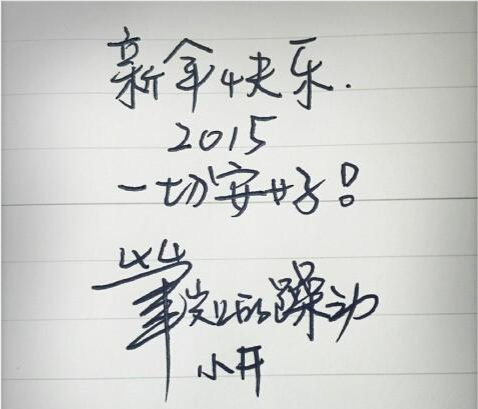 新年快乐.
2015
一切安好!
笔尖的躁动
小开